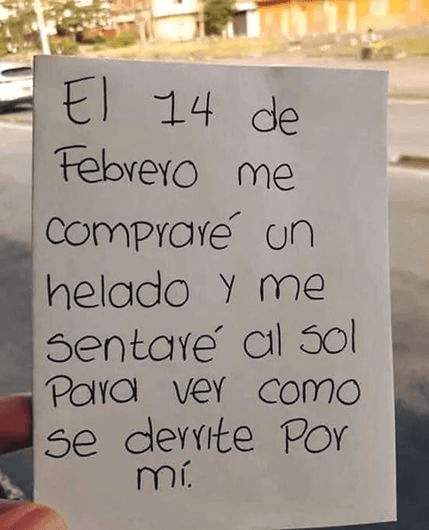 El 14 de
Febrero me
compraré un
helado y me
sentaré al sol
Para ver como
se derrite Por
mí.